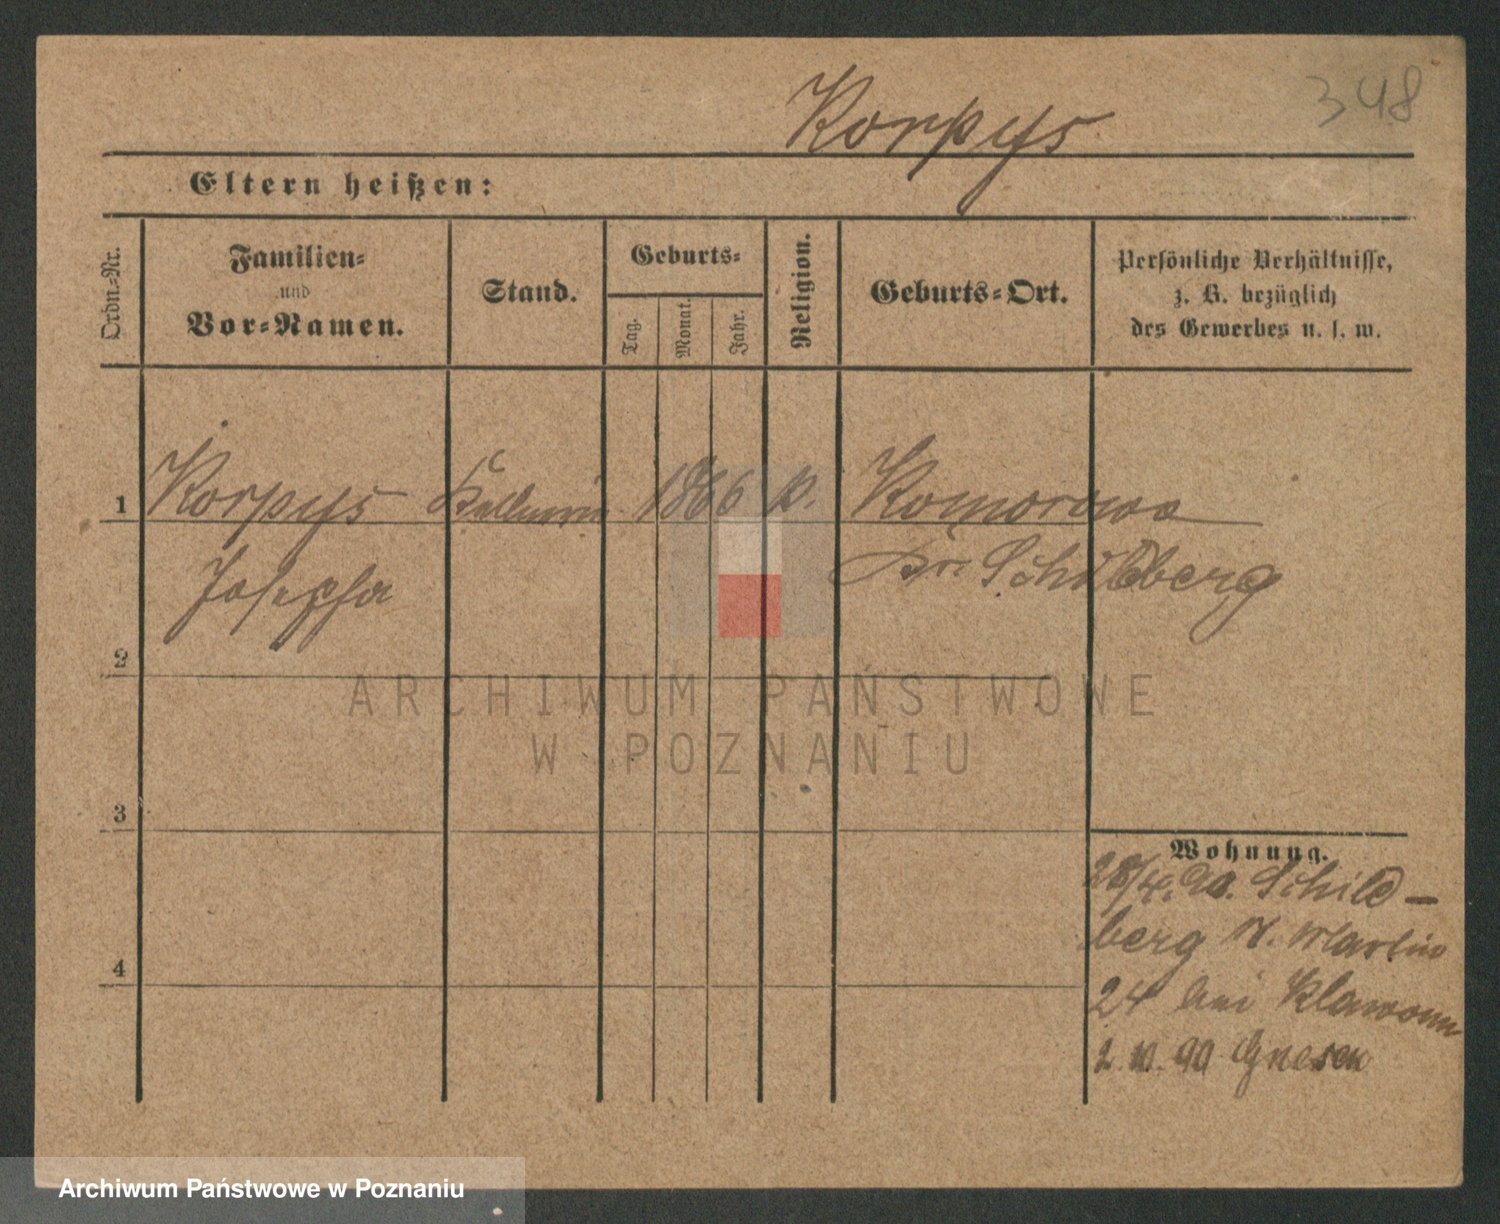 348
Korpys
Eltern heißen:
Ordn.-Nr.
Familien-
und
Vor-Namen.
Stand.
Geburts-
Tag.
Monat.
Jahr.
Religion.
Geburts-Ort.
Persönliche Verhältnisse,
z. B. bezüglich
des Gewerbes u. s. w.
1 Korpys Kellnerin 1866 k. Komorowo
Josepha Kr. Schildberg
2
ARCHIWUM PAŃSTWOWE
W POZNANIU
3
Wohnung.
28/4. 90. Schild-
berg St. Martin
4
24 bei Klawonn
2. 10. 90 Gnesen
Archiwum Państwowe w Poznaniu